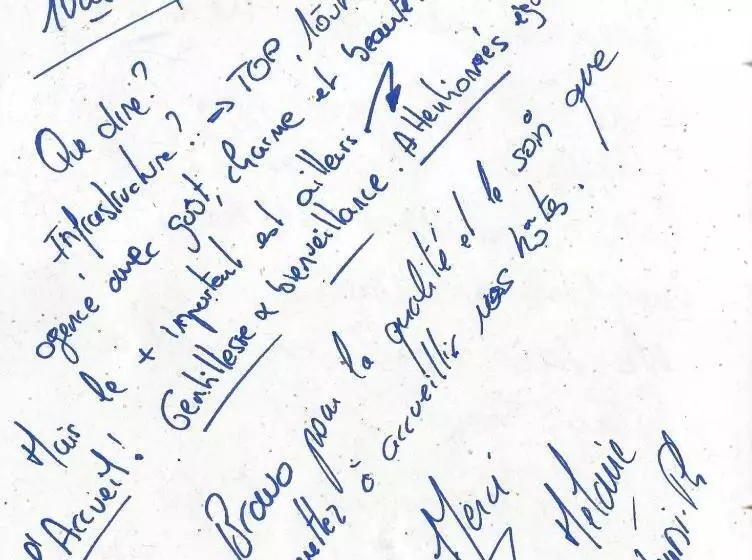 Que dire?
Infrastructure? → TOP, tout
agencé avec goût, charme et beauté
Mais le + important est ailleurs
l'Accueil! Gentillesse & bienveillance. Attentionnés
Bravo pour la qualité et le soin que
mettez à accueillir vos hôtes.
Merci
Mélanie